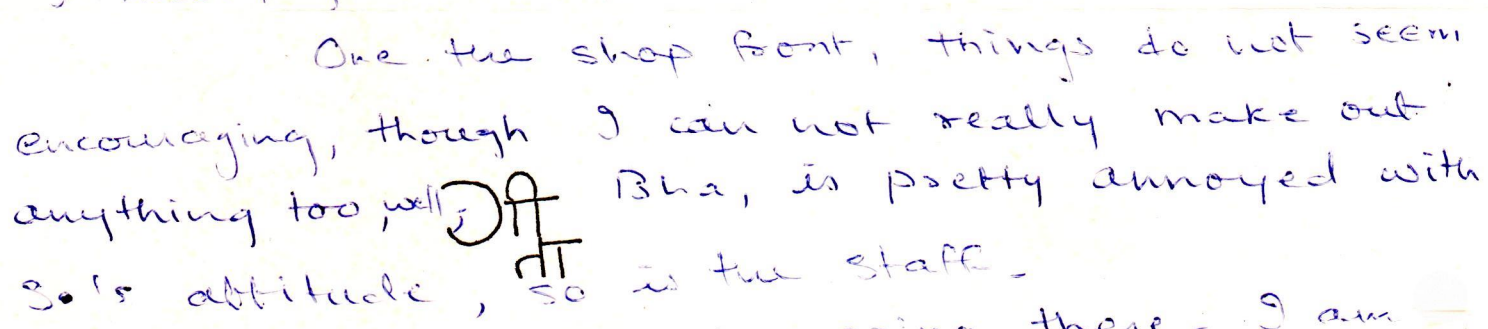 One the shop front, things do not seem
encouraging, though I can not really make out
anything too well, Bha, is pretty annoyed with
So's attitude, so is the staff.
there. I am